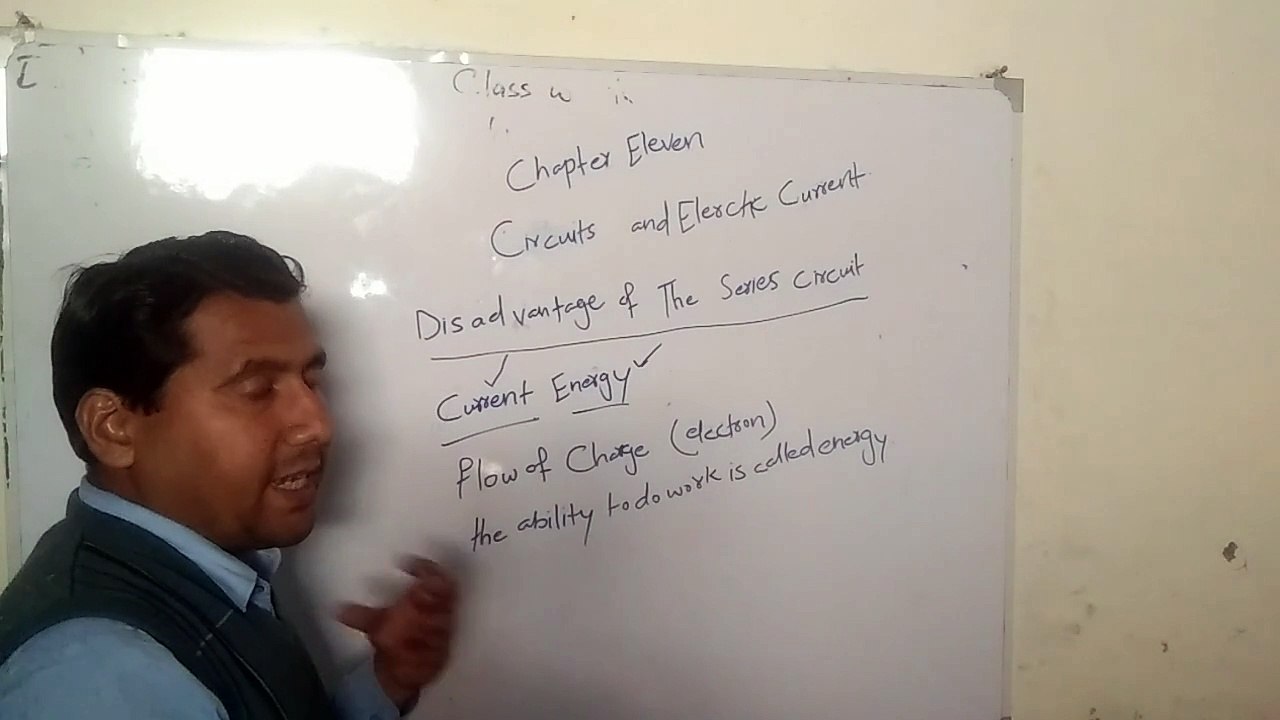 I
Class
Chapter Eleven
Circuits and Elerctic Current
Disadvantage of The Series circuit
Current Energy
flow of Charge (electron)
the ability to do work is called energy